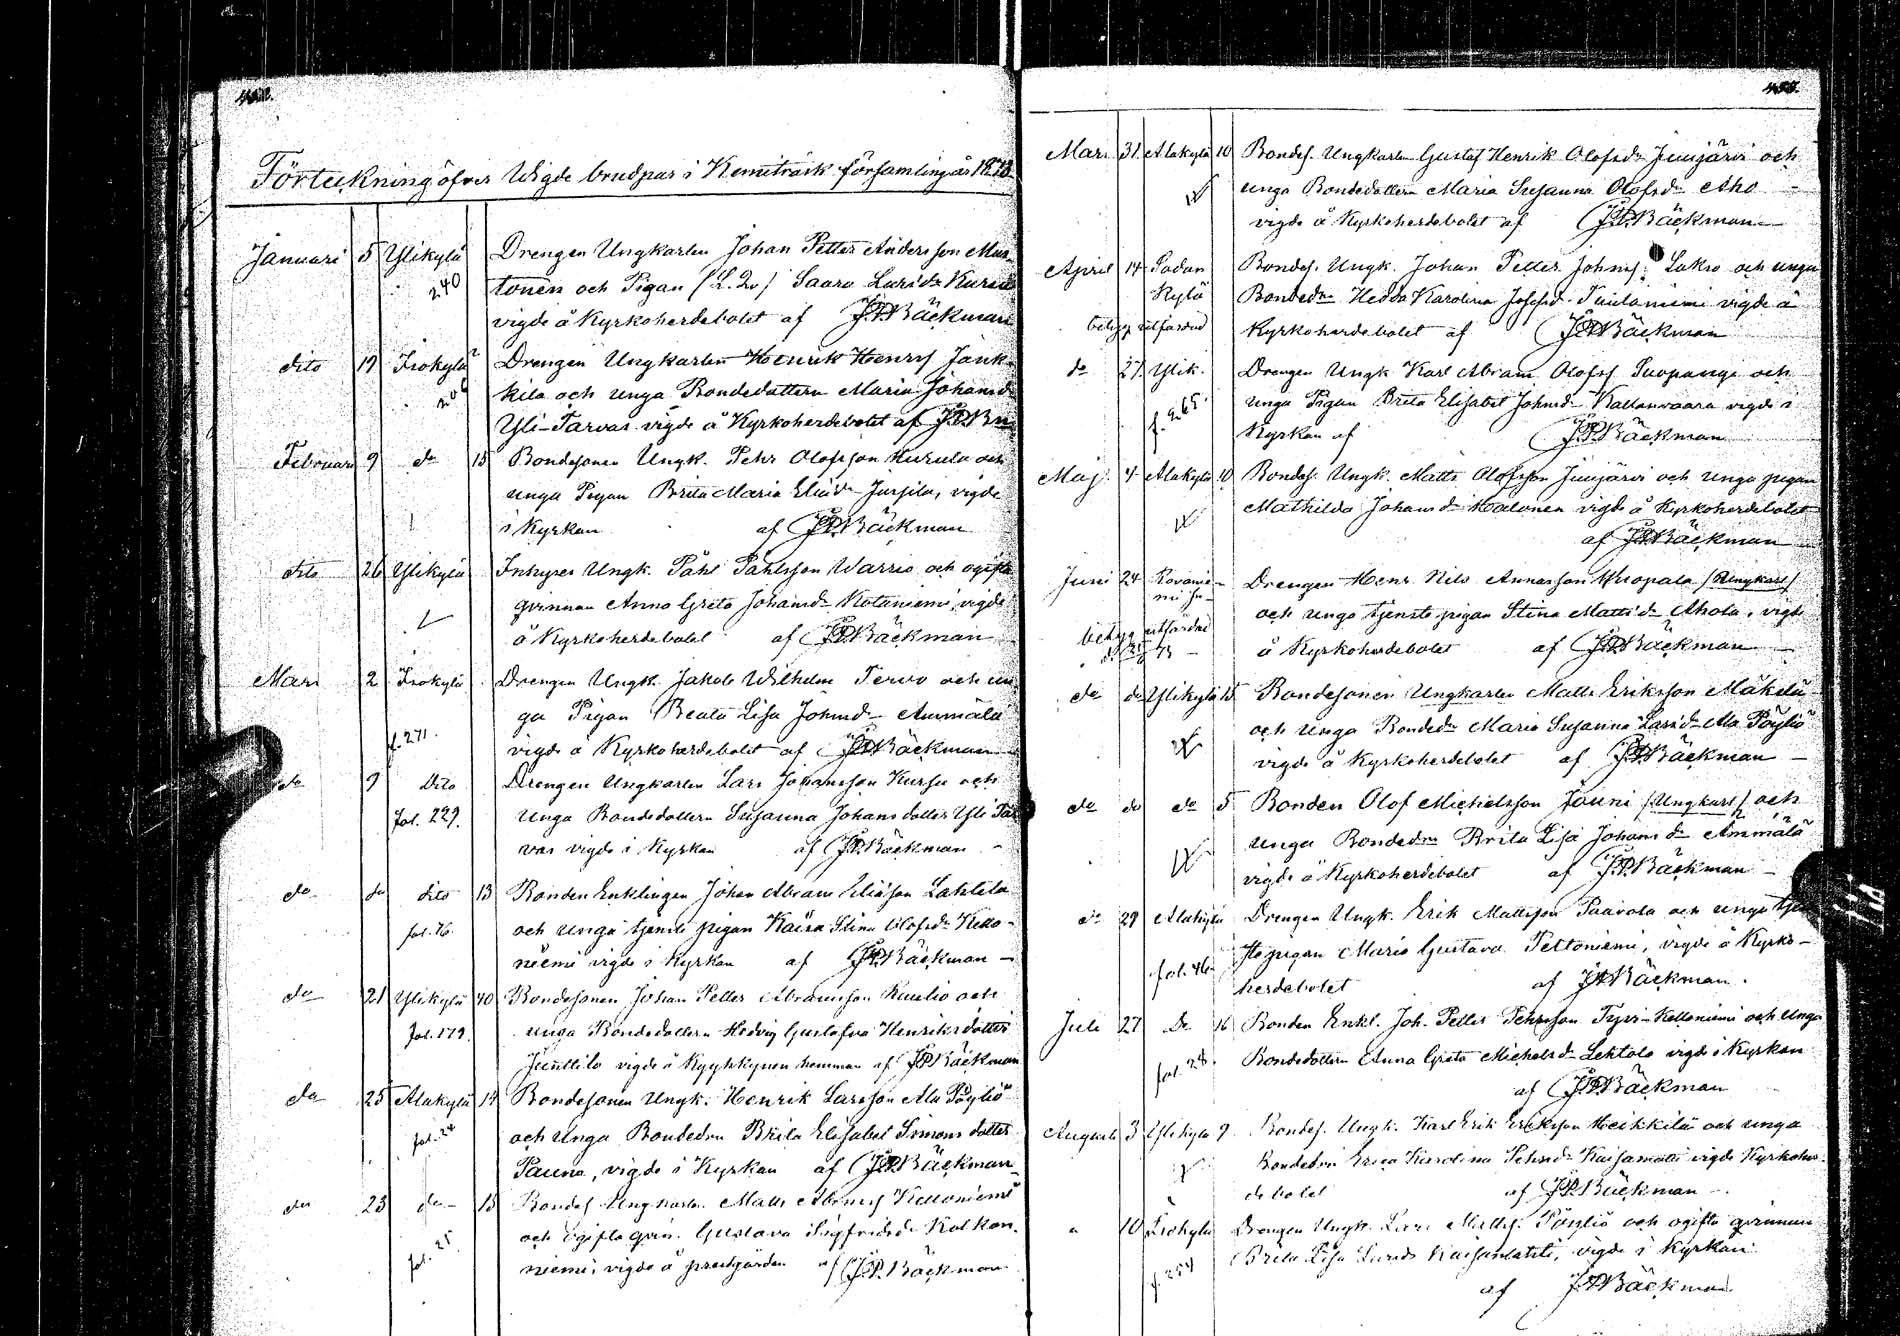 Förteckning öfver Wigde brudpar i Kemiträsk församling år 1873
Januari 5 Ylikylä Drengen Ungkarlen Johan Petter Andersson Mus-
240 tonen och Pigan (L. Qv) Saara Larsdr
vigde å Kyrkoherdebolet af J.P. Bäckman
dito 19 Isokylä Drengen Ungkarlen Henrik Henrs Jank-
kila och unga Bondedottern Maria Johansdr
Yli-Tarvas vigde å Kyrkoherdebolet af
Februari 9 do 15 Bondesonen Ungk. Pehr Olofsson och
unga Pigan Brita Maria Eliedr vigde
i Kyrkan af J.P. Bäckman
dito 26 Ylikylä Inhyses Ungk. Påhl Påhlsson Warrio och ogifta
qvinnan Anna Greta Johansdr Kotaniemi, vigde
å Kyrkoherdebolet af J.P. Bäckman
Mars 2 Isokylä Drengen Ungk. Jakob Wilhelm Tervo och un
ga Pigan Beata Lisa Johnsd Ammälä
f. 271. vigde å Kyrkoherdebolet af J.P. Bäckman
do 9 Dito Drengen Ungkarlen Lars Johansson Kursu och
fol. 229. unga Bondedottern Susanna Johansdotter Yli Tar
vas vigde i Kyrkan af J.P. Bäckman
do do dito 13 Bonden Enklingen Johan Abram Eliasson Lahtela
fol. 76 och unga tjenste pigan Kaisa Stina Olofsdr Kello-
niemi vigde i Kyrkan af J.P. Bäckman
do 21 Ylikylä 40 Bondesonen Johan Petter Abramsson Kuulio och
fol. 179. unga Bondedottern Hedvig Gustafva Henriksdotter
Junttila vigde å hemman af J.P. Bäckman
do 25 Alakylä 14 Bondesonen Ungk. Henrik Larsson Ala Pöyliö
fol. 24 och unga Bondedrn Brita Elisabet Simonsdotter
Pauna, vigde i Kyrkan af J.P. Bäckman
do 23 do 15 Bondes Ungkarlen Matts Abrams Kelloniemi
och Ogifta qvin. Gustava Sigfridsdr Kalkon-
fol. 25 niemi, vigde å prestgården af J.P. Bäckman
Mars 31 Alakylä 10 Bondes. Ungkarlen Gustaf Henrik Olofsdr Jumjärvi och
unga Bondedottern Maria Susanna Olofsdr Aho
vigde å Kyrkoherdebolet af J.P. Bäckman
April 14 Sodan Bondes. Ungk. Johan Petter Johns. Lakso och unga
Kylä Bondedrn Hedda Karolina Josefsd. vigde å
betyg utfärdad Kyrkoherdebolet af J.P. Bäckman
do 27. Ylik. Drengen Ungk Karl Abram Olofss Suopanga och
f. 265. unga Pigan Brita Elisabet Johnsd Kallanvaara vigde i
Kyrkan af J.P. Bäckman
Maj 4 Alakylä 10 Bondes. Ungk. Matts Olofsson Jumjärvi och unga pigan
Mathilda Johansdr Halonen vigde å Kyrkoherdebolet
af J.P. Bäckman
Juni 24 Rovanie- Drengen Henr. Nils Annasson Kuopala (Ungkarl)
mi och unga tjenstepigan Stina Mattsdr Ahola, vigde
betyg utfärdad å Kyrkoherdebolet af J.P. Bäckman
do do Ylikylä 15 Bondesonen Ungkarlen Matts Eriksson Mäkelä
och unga Bondedr Maria Susanna Larsdr Ala Pöyliö
vigde å Kyrkoherdebolet af J.P. Bäckman
do do do 5 Bonden Olof Michelsson Jauni (Ungkarl) och
unga Bondedrn Brita Lisa Johansdr Ammälä
vigde å Kyrkoherdebolet af J.P. Bäckman
do 29 Alakylä Drengen Ungk. Erik Mattsson Paavola och unga tjen
fol. 46 stepigan Maria Gustava Peltoniemi, vigde å Kyrko-
herdebolet af J.P. Bäckman.
Juli 27 Do 16 Bonden Enkl. Joh. Petter Pehrsson Tyvi-Kelloniemi och unga
fol. 28. Bondedottern Anna Greta Michelsdr Lehtola vigde i Kyrkan
af J.P. Bäckman
Augusti 3 Ylikylä 9 Bondes. Ungk. Karl Erik Eriksson Heikkilä och unga
Bondedrn Erica Karolina vigde Kyrkoher-
debolet af J.P. Bäckman
" 10 Isokylä Drengen Ungk. Lars Matts. Pöyliö och ogifta qvinnan
f. 254 Brita Lisa Larsdr vigde i Kyrkan
af J.P. Bäckman